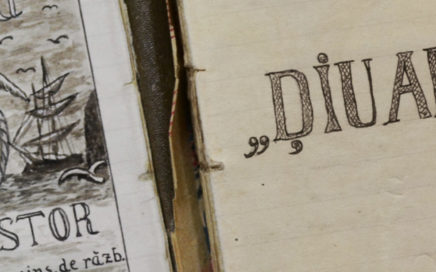 STOR
ins. de războ.
„D̦IUA